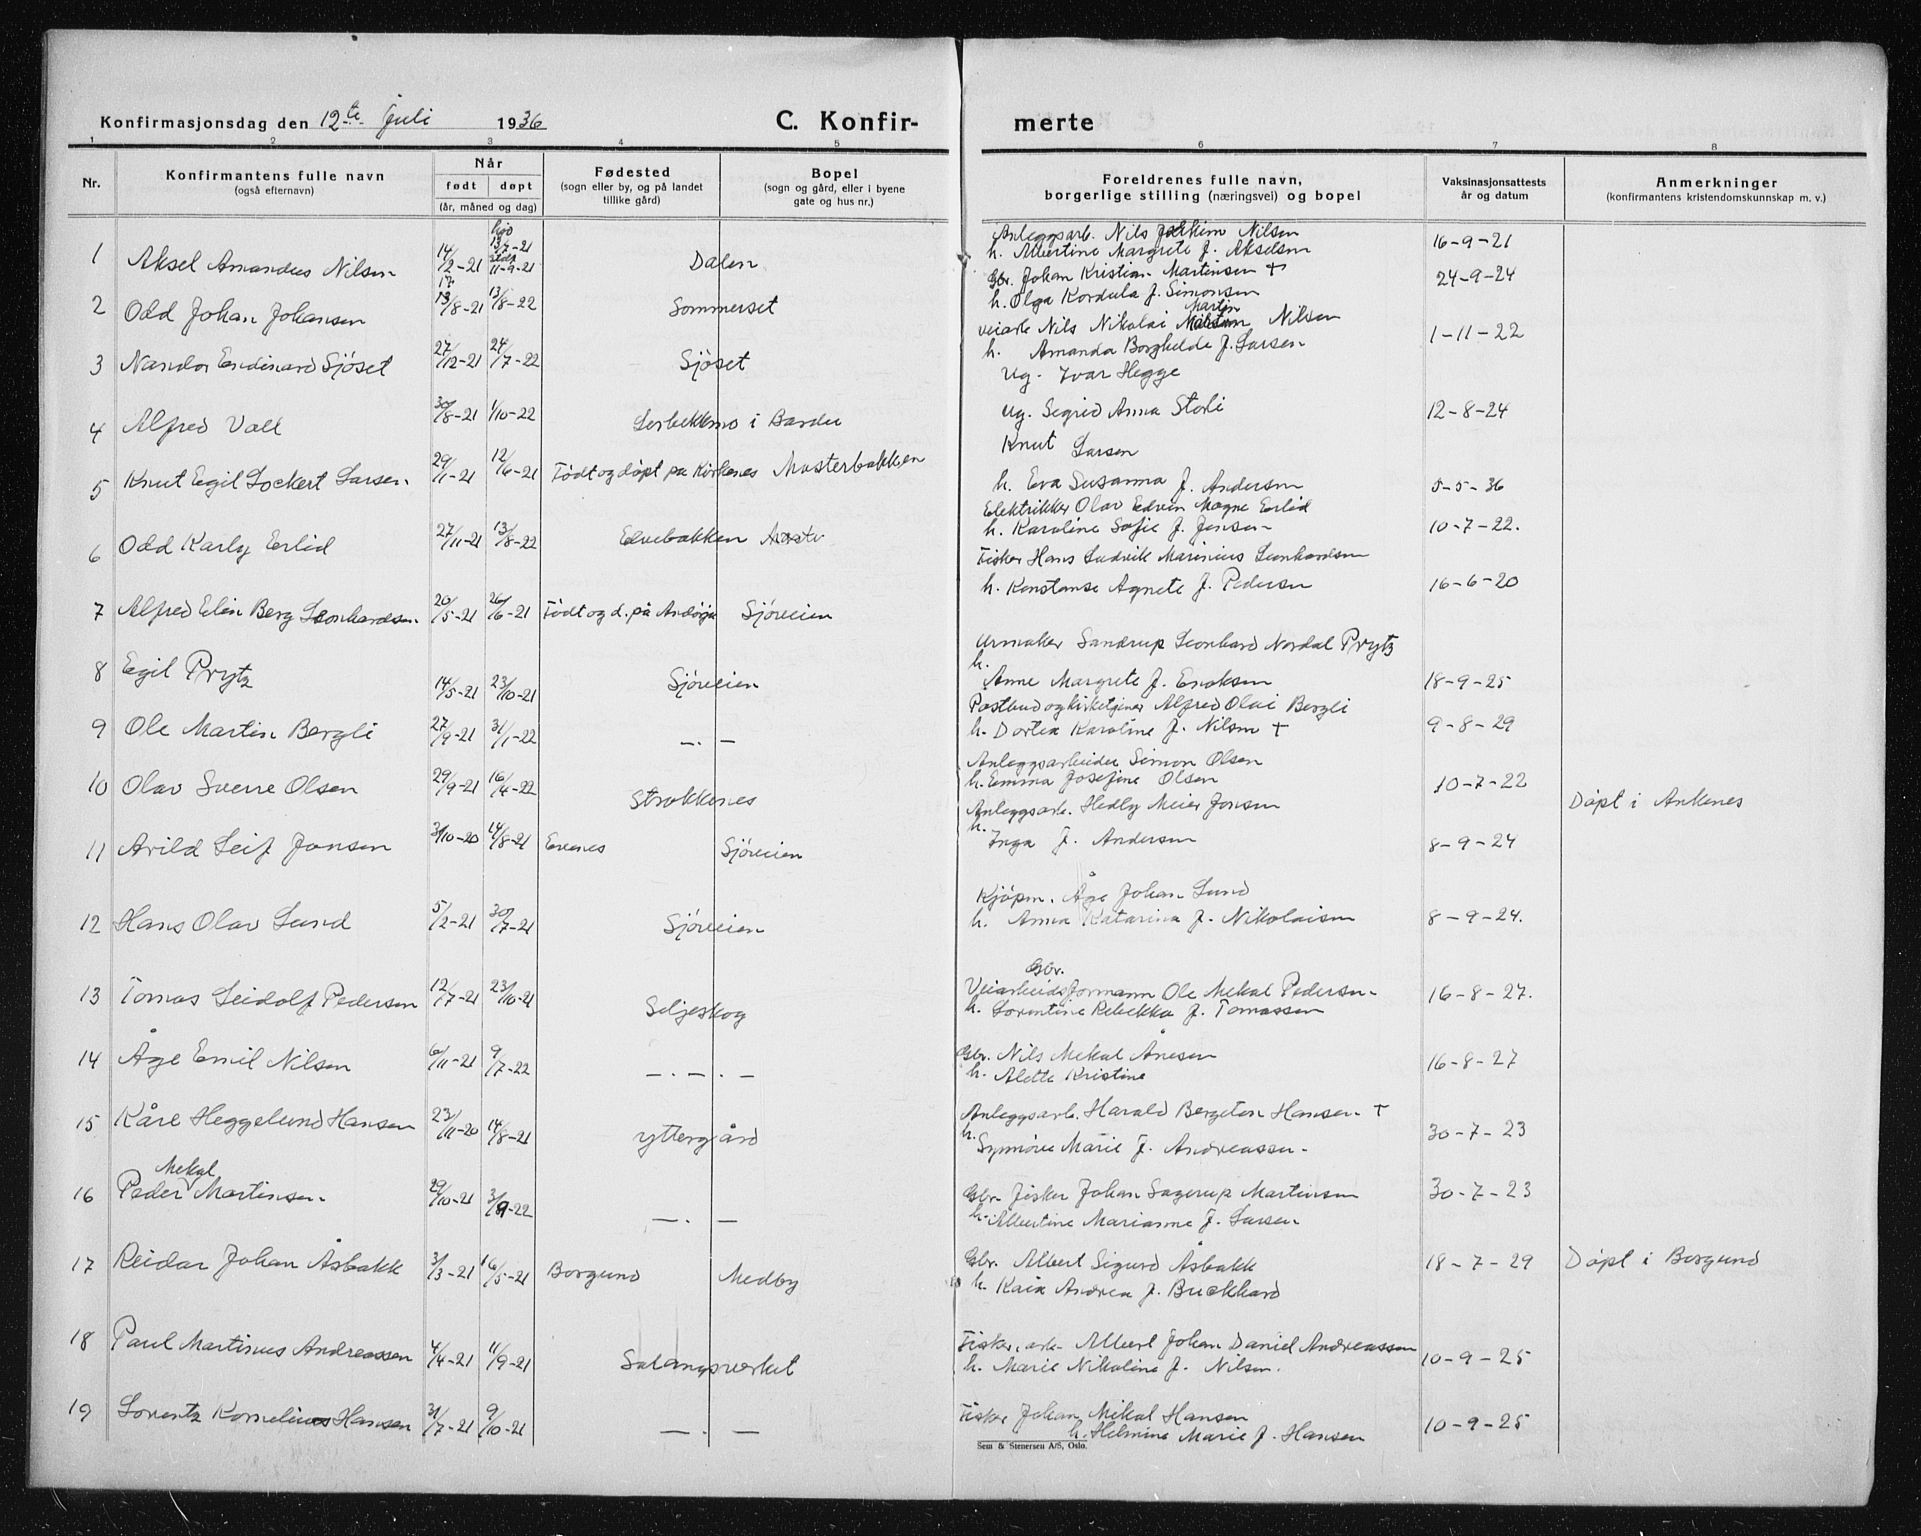 Konfirmasjonsdag den 12te Juli 1936 C. Konfir- merte
1 2 3 4 5 6 7 8
Nr. Konfirmantens fulle navn (også efternavn) Når født døpt (år, måned og dag) Fødested (sogn eller by, og på landet tillike gård) Bopel (sogn og gård, eller i byene gate og hus nr.) Foreldrenes fulle navn, borgerlige stilling (næringsvei) og bopel Vaksinasjonsattests år og datum Anmerkninger (konfirmantens kristendomskunnskap m. v.)
1 Aksel Amandus Nilsen 14/2-21 hjd 13/7-21 stedf 11-9-21 Dalen Anleggsarb. Nils Joakim Nilsen 16-9-21
h. Albertine Margrete f. Akselsen
2 Odd Johan Johansen 13/8-21 13/8-22 Sommerset Gbr. Johan Kristian Martinsen + 24-9-24
h. Olga Kordula f. Simonsen
3 Nandor Endinard Sjöset 27/12-21 24/7-22 Sjöset veiarb Nils Nikolai Martin Nilsen 1-11-22
h. Amanda Borghilde f. Larsen
4 Alfred Vall 30/8-21 1/10-22 Lerbekkmo i Bardu Ug. Ivar Hegge
ug. Sigrid Anna Storli 12-8-24
5 Knut Egil Lockert Larsen 29/1-21 12/6-21 Født og døpt på Kirkenes Mosterbakken Knut Larsen
h. Eva Susanna f. Andersen 5-5-36
6 Odd Karly Erlid 27/11-21 13/8-22 Elvebakken Elektrikker Olav Edvin Magne Erlid
h. Karoline Sofie f. Jensen 10-7-22.
7 Alfred Elin Berg Leonhardsen 20/5-21 26/6-21 Født og d. på Andørja Sjöveien Fisker Hans Ludvik Marinius Leonhardsen
h. Konstanse Agnete f. Pedersen 16-6-20
8 Egil Prytz 14/5-21 23/10-21 Sjöveien Urmaker Sandrup Leonhard Nordal Prytz
h. Anne Margrete f. Enoksen 18-9-25
9 Ole Martin Bergli 27/9-21 31/1-22 —.— Postbud og kirketjener Alfred Olai Bergli
h. Dortea Karoline f. Nilsen + 9-8-29
10 Olav Sverre Olsen 29/9-21 16/4-22 Strokkenes Anleggsarbeider Simon Olsen
h. Emma Josefine Olsen 10-7-22 Døpt i Ankenes
11 Arild Leif Jonsen 31/10-20 14/8-21 Evenes Sjöveien Anleggsarb. Hedly Meier Jonsen
h. Inga f. Andersen 8-9-24
12 Hans Olav Lund 5/2-21 30/7-21 Sjöveien Kjöpm. Åge Johan Lund
h. Anna Katarina f. Nikolaisen 8-9-24.
13 Tomas Leidolf Pedersen 12/7-21 23/10-21 Seljeskog Gbr.
Veiarbeidsformann Ole Mekal Pedersen 16-8-27.
h. Lorentine Rebekka f. Tomassen
14 Åge Emil Nilsen 6/11-21 9/7-22 —.—.— Gbr. Nils Mekal Ånesen 16-8-27
h. Alette Kristine
15 Kåre Heggelund Hansen 23/11-20 14/8-21 Yttergård Anleggsarb. Harald Bergeton Hansen +
h. Synnöve Marie f. Andreassen 30-7-23
16 Peder Mekal Martinsen 29/10-21 3/9-22 —.— Gbr. fisker Johan Sagerup Martinsen 30-7-23
h. Albertine Marianne f. Larsen
17 Reidar Johan Åsbakk 3/3-21 16/5-21 Borgund Medby Gbr. Albert Sigurd Åsbakk 18-7-29 Døpt i Borgund
h. Kaia Andrea f. Buckhard
18 Paul Martinus Andreassen 4/4-21 11/9-21 Salangsverket Fisker, arb. Albert Johan Daniel Andreassen
h. Marie Nikoline f. Nilsen. 10-9-25
19 Lorentz Kornelius Hansen 31/7-21 9/10-21 —.— Fisker Johan Mikal Hansen 10-9-25
h. Helmine Marie f. Hansen
Sem & Stenersen A/S, Oslo.